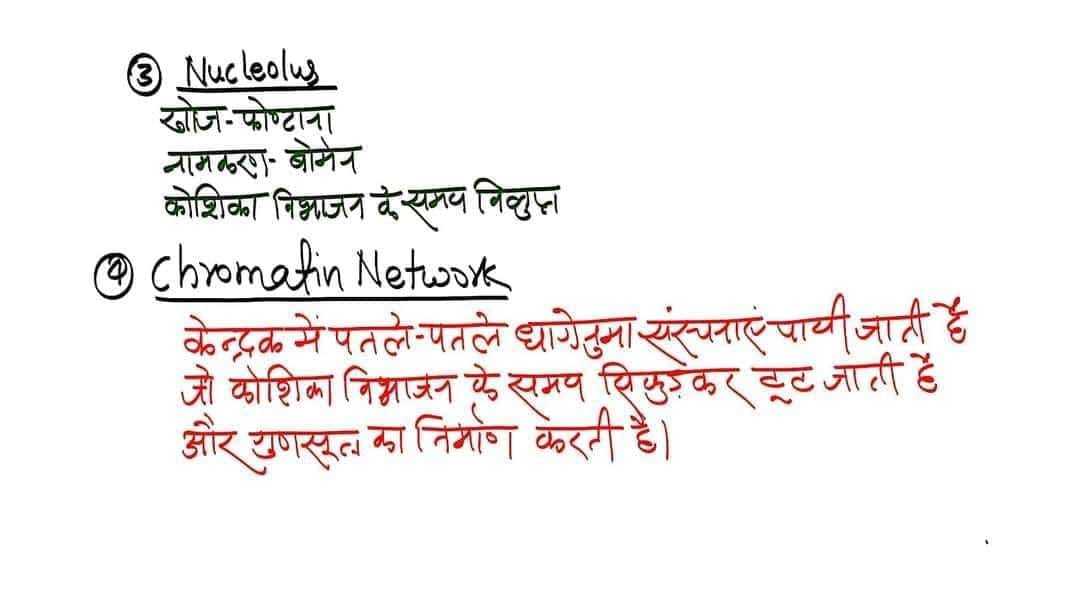 ③ Nucleolus
खोज- फोण्टाना
नामकरण- बोमेन
कोशिका विभाजन के समय विलुप्त
④ Chromatin Network
केन्द्रक में पतले-पतले धागेनुमा संरचनाएं पायी जाती है
जो कोशिका विभाजन के समय सिकुड़कर टूट जाती है
और गुणसूत्र का निर्माण करती है।